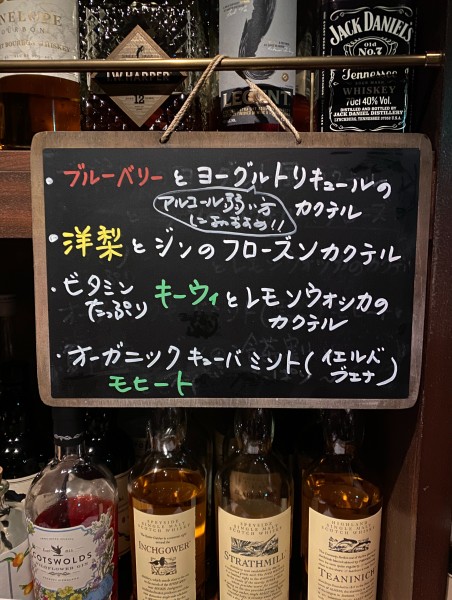 I.W.HARPER
12
LEGENT
JACK DANIEL'S
OLD
No.7
Tennessee
WHISKEY
70cl 40% Vol.
DISTILLED AND BOTTLED BY
JACK DANIEL DISTILLERY
LYNCHBURG, TENNESSEE USA
・ブルーベリーとヨーグルトリキュールの
カクテル
アルコール弱い方
におすすめ!!
・洋梨とジンのフローズンカクテル
・ビタミン
たっぷり
キーウィとレモンウォッカの
カクテル
・オーガニックキューバミント(イエルバ
ブエナ)
モヒート
COTSWOLDS
WILDFLOWER GIN
SPEYSIDE
SINGLE MALT
SCOTCH WHISKY
INCHGOWER
SPEYSIDE
SINGLE MALT
SCOTCH WHISKY
STRATHMILL
HIGHLAND
SINGLE MALT
SCOTCH WHISKY
TEANINICH